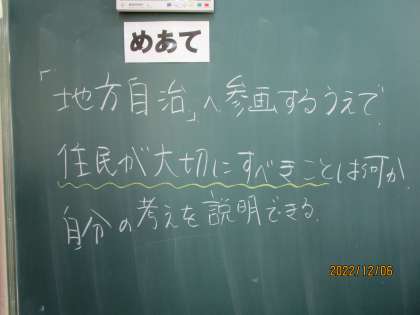 めあて
「地方自治」へ参画するうえで
住民が大切にすべきことは何か
自分の考えを説明できる.
2022/12/06